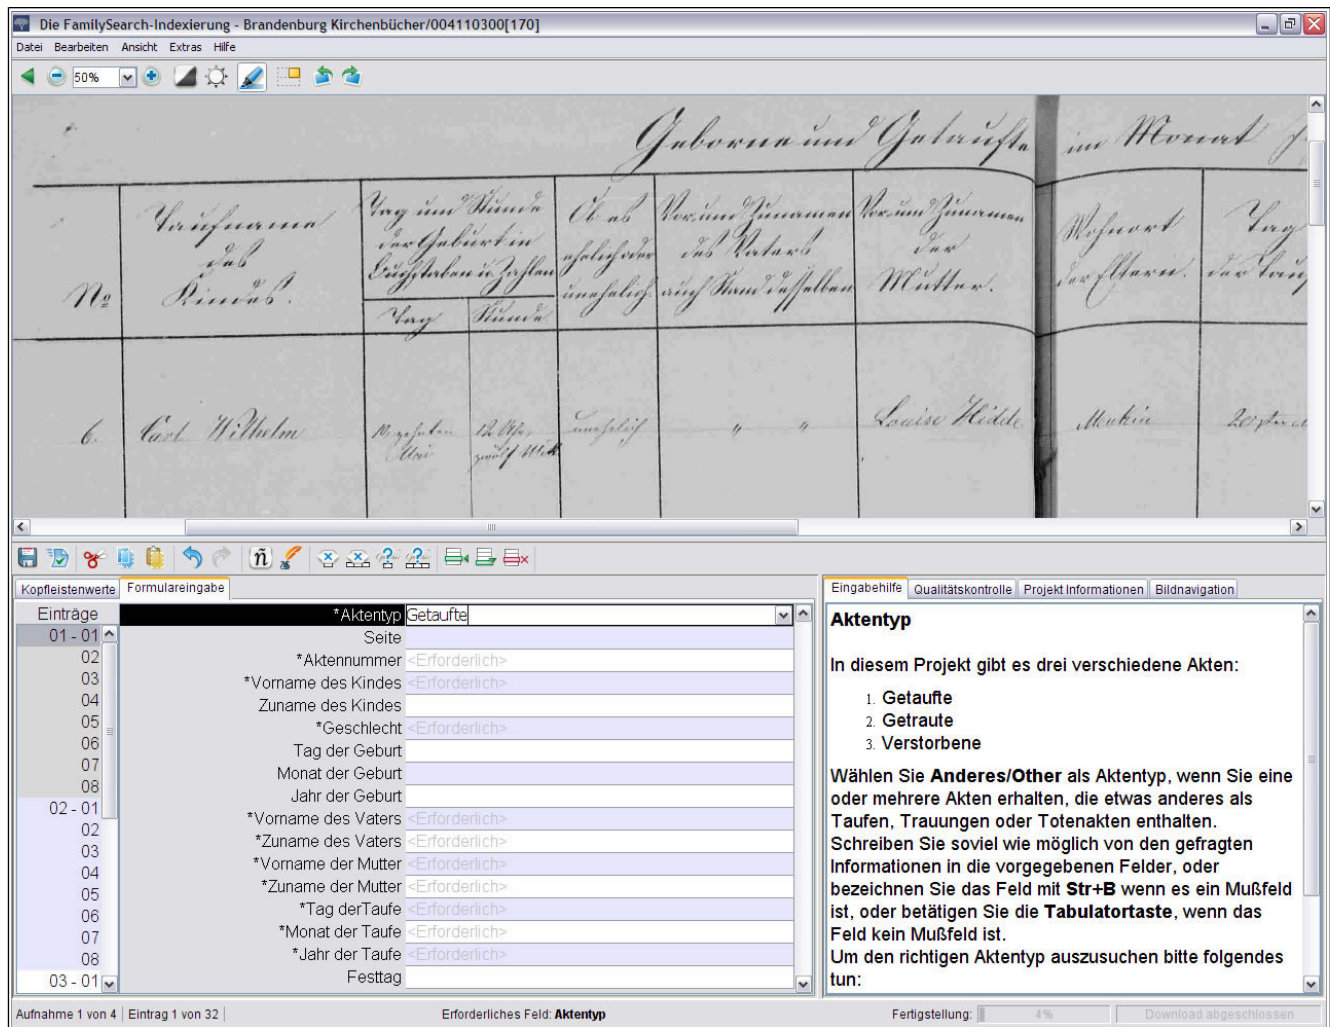 Die FamilySearch-Indexierung - Brandenburg Kirchenbücher/004110300[170]
Datei Bearbeiten Ansicht Extras Hilfe
50%
Geborne und Getaufte im Monat
No
Taufname des Kindes.
Tag und Stunde der Geburt in Buchstaben u. Zahlen
Tag
Stunde
Ob es ehelich oder unehelich
Vor und Zunamen des Vaters auch Stand desselben
Vor und Zunamen der Mutter.
Wohnort der Eltern.
Tag der
6.
Carl Wilhelm
Mai
12 Uhr,
zwölf
unehelich
" "
Louise Hidde
Kopfleistenwerte Formulareingabe
Einträge
01 - 01
02
03
04
05
06
07
08
02 - 01
02
03
04
05
06
07
08
03 - 01
*Aktentyp Getaufte
Seite
*Aktennummer <Erforderlich>
*Vorname des Kindes <Erforderlich>
Zuname des Kindes
*Geschlecht <Erforderlich>
Tag der Geburt
Monat der Geburt
Jahr der Geburt
*Vorname des Vaters <Erforderlich>
*Zuname des Vaters <Erforderlich>
*Vorname der Mutter <Erforderlich>
*Zuname der Mutter <Erforderlich>
*Tag derTaufe <Erforderlich>
*Monat der Taufe <Erforderlich>
*Jahr der Taufe <Erforderlich>
Festtag
Eingabehilfe Qualitätskontrolle Projekt Informationen Bildnavigation
Aktentyp
In diesem Projekt gibt es drei verschiedene Akten:
1. Getaufte
2. Getraute
3. Verstorbene
Wählen Sie Anderes/Other als Aktentyp, wenn Sie eine
oder mehrere Akten erhalten, die etwas anderes als
Taufen, Trauungen oder Totenakten enthalten.
Schreiben Sie soviel wie möglich von den gefragten
Informationen in die vorgegebenen Felder, oder
bezeichnen Sie das Feld mit Str+B wenn es ein Mußfeld
ist, oder betätigen Sie die Tabulatortaste, wenn das
Feld kein Mußfeld ist.
Um den richtigen Aktentyp auszusuchen bitte folgendes
tun:
Aufnahme 1 von 4 Eintrag 1 von 32 Erforderliches Feld: Aktentyp Fertigstellung: 4% Download abgeschlossen